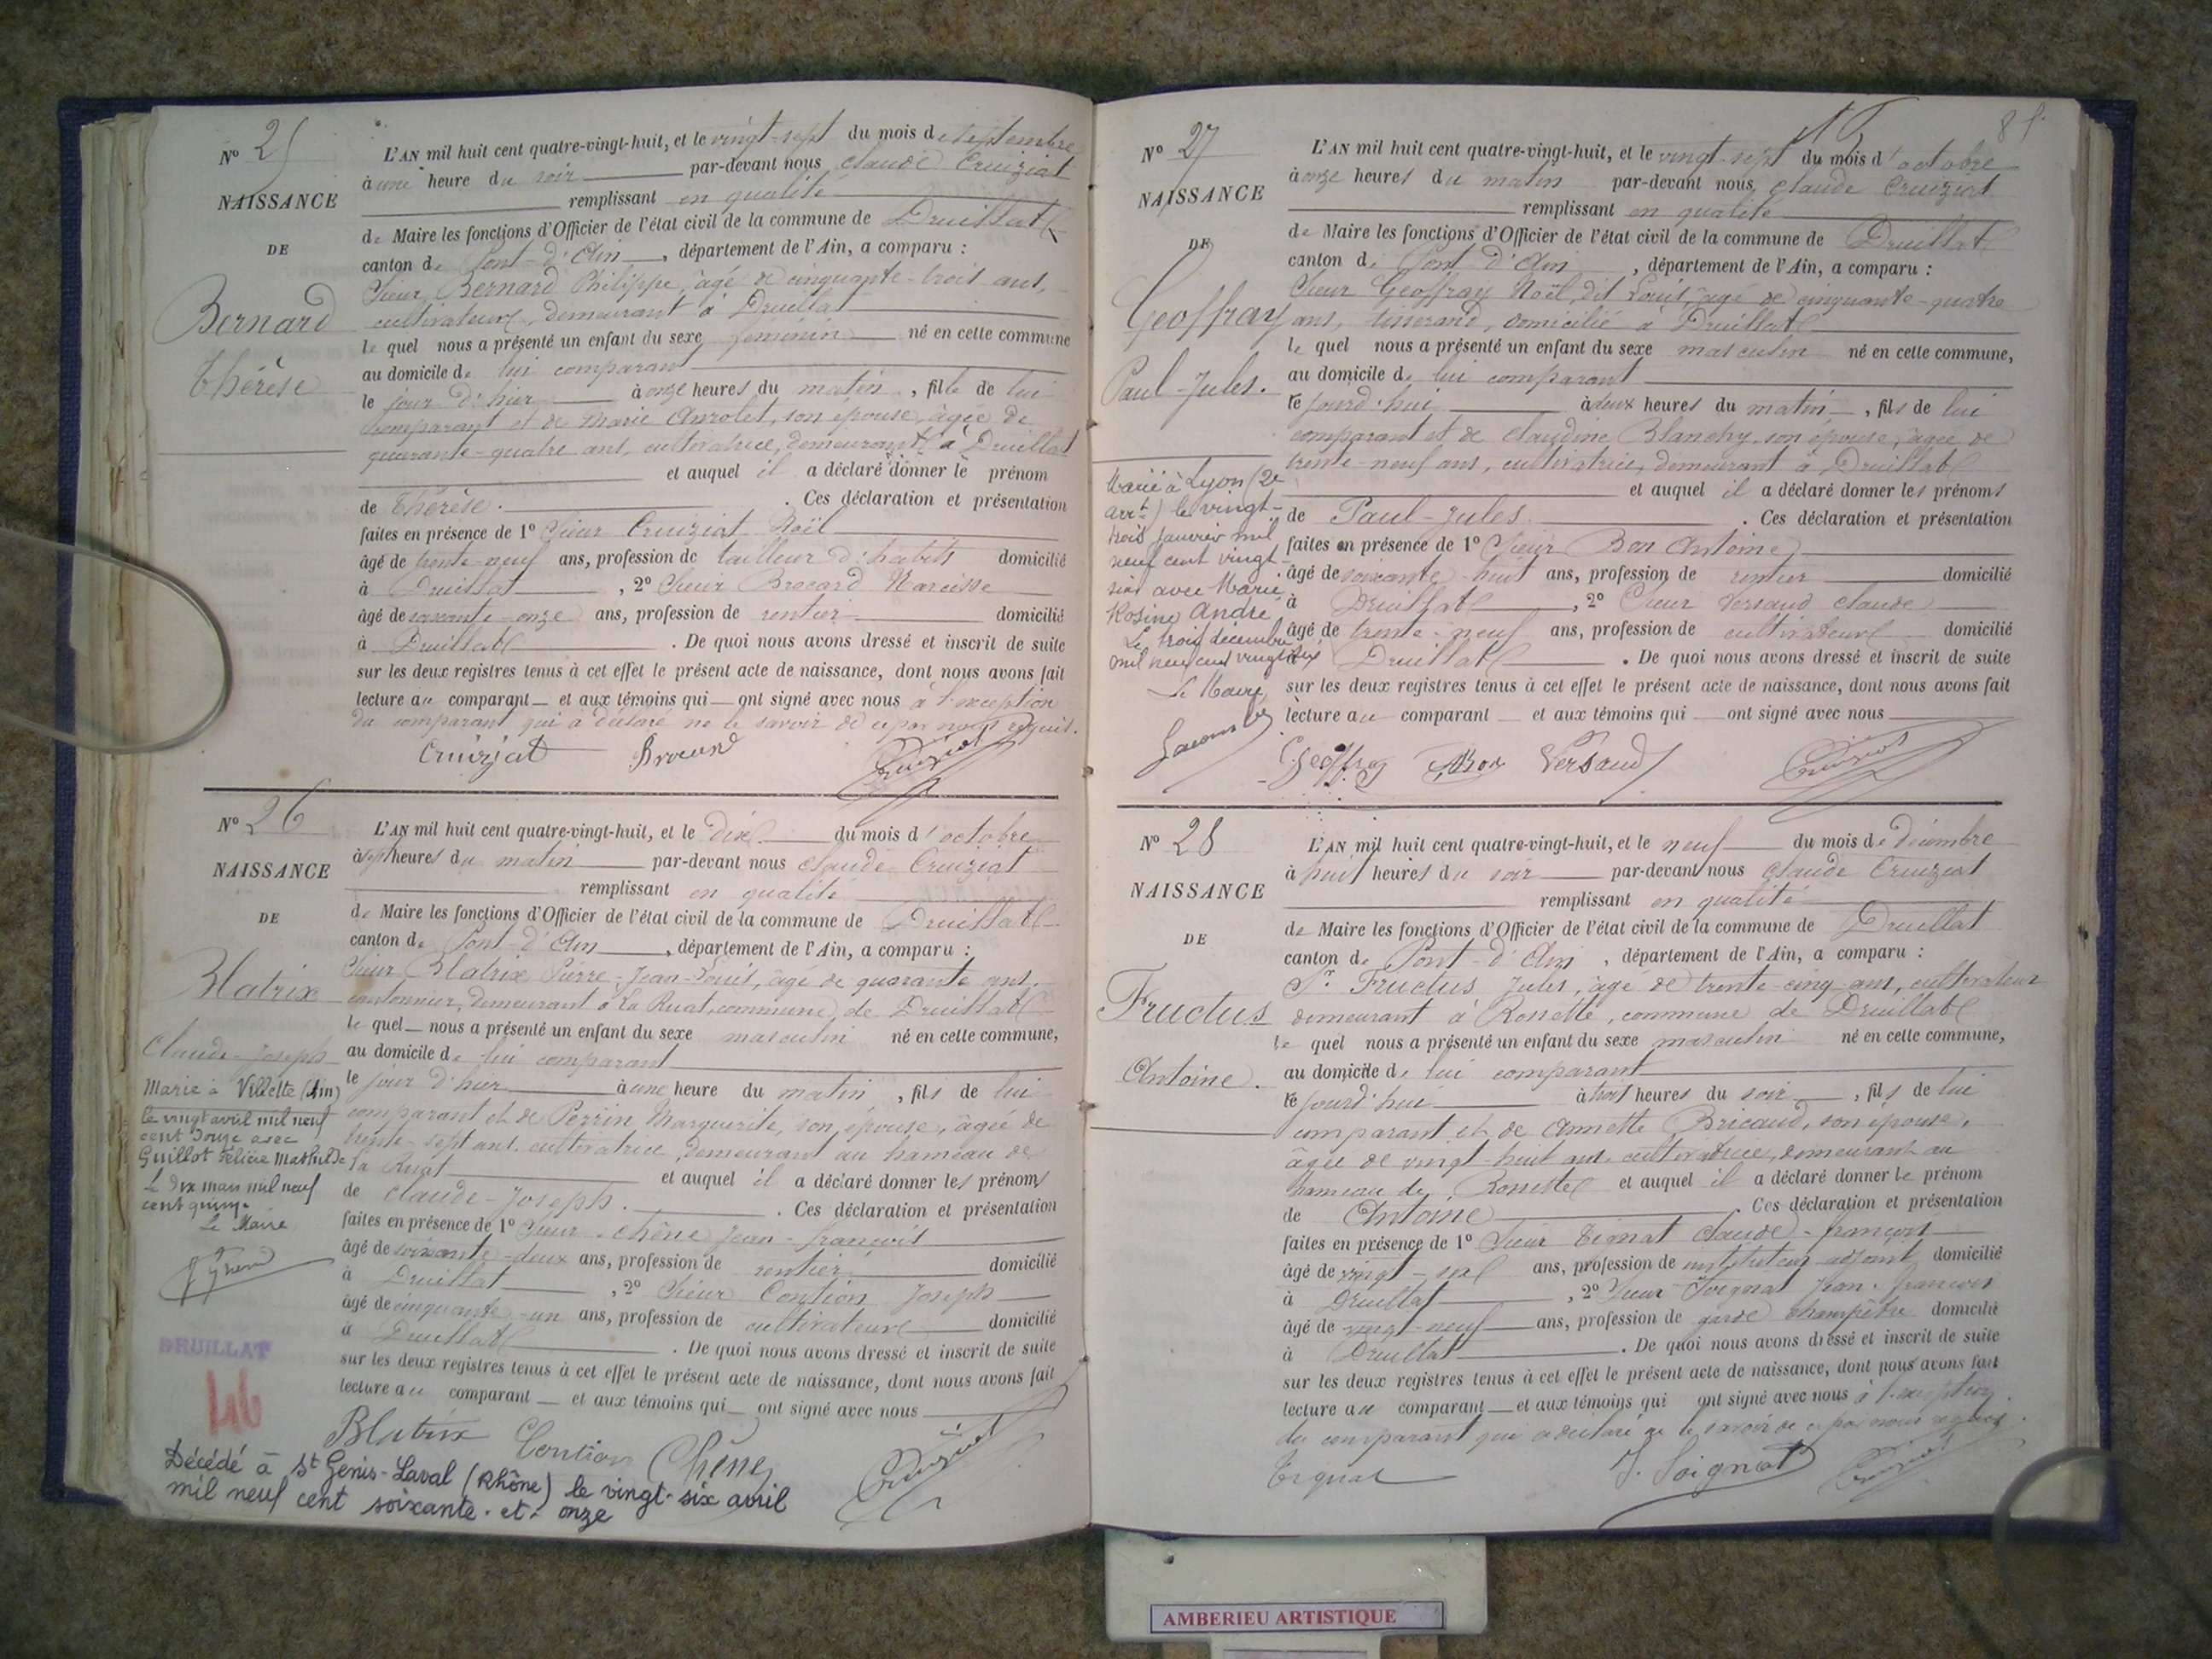 N° 25
NAISSANCE
DE
Bernard
Thérèse
L'AN mil huit cent quatre-vingt-huit, et le vingt-sept du mois de septembre
à une heure du soir par-devant nous Claude Cruiziat
remplissant en qualité
de Maire les fonctions d'Officier de l'état civil de la commune de Druillat
canton de Pont-d'Ain, département de l'Ain, a comparu :
Sieur Bernard Philippe, âgé de cinquante-trois ans,
cultivateur, demeurant à Druillat
le quel nous a présenté un enfant du sexe féminin né en cette commune
au domicile de lui comparant
le jour d'hier à onze heures du matin, fille de lui
comparant et de Marie son épouse, âgée de
quarante-quatre ans, cultivatrice, demeurant à Druillat
et auquel il a déclaré donner le prénom
de Thérèse. Ces déclaration et présentation
faites en présence de 1° Sieur Cruiziat Noël
âgé de trente-neuf ans, profession de tailleur d'habits domicilié
à Druillat, 2° Sieur Brocard Narcisse
âgé de soixante-onze ans, profession de rentier domicilié
à Druillat. De quoi nous avons dressé et inscrit de suite
sur les deux registres tenus à cet effet le présent acte de naissance, dont nous avons fait
lecture au comparant et aux témoins qui ont signé avec nous à l'exception
du comparant qui a déclaré ne le savoir de ce par nous requis.
Cruiziat Brocard Cruiziat
N° 26
NAISSANCE
DE
Blatrix
Claude-Joseph
Marié à Villette (Ain)
le vingt avril mil neuf
cent douze avec
Guillot Félicie Mathilde
Le dix mars mil neuf
cent quinze
Le Maire
DRUILLAT
46
L'AN mil huit cent quatre-vingt-huit, et le dix du mois d'octobre
à sept heures du matin par-devant nous Claude Cruiziat
remplissant en qualité
de Maire les fonctions d'Officier de l'état civil de la commune de Druillat
canton de Pont-d'Ain, département de l'Ain, a comparu :
Sieur Blatrix Pierre-Jean-Louis, âgé de quarante ans,
cantonnier, demeurant à la Ruat, commune de Druillat
le quel nous a présenté un enfant du sexe masculin né en cette commune,
au domicile de lui comparant
le jour d'hier à une heure du matin, fils de lui
comparant et de Perrin Marguerite, son épouse, âgée de
trente-sept ans, cultivatrice, demeurant au hameau de
la Ruat et auquel il a déclaré donner les prénoms
de Claude-Joseph. Ces déclaration et présentation
faites en présence de 1° Sieur Chêne Jean-François
âgé de soixante-deux ans, profession de rentier domicilié
à Druillat, 2° Sieur Contion Joseph
âgé de cinquante-un ans, profession de cultivateur domicilié
à Druillat. De quoi nous avons dressé et inscrit de suite
sur les deux registres tenus à cet effet le présent acte de naissance, dont nous avons fait
lecture au comparant et aux témoins qui ont signé avec nous
Blatrix Contion Chêne Cruiziat
Décédé à St Genis-Laval (Rhône) le vingt-six avril
mil neuf cent soixante-et-onze
N° 27
NAISSANCE
DE
Geoffray
Paul-Jules.
Marié à Lyon (2e
arrt) le vingt-
trois janvier mil
neuf cent vingt
six avec Marie
Rosine André
Le trois décembre
mil neuf cent vingt six
Le Maire,
L'AN mil huit cent quatre-vingt-huit, et le vingt-sept du mois d'octobre
à onze heures du matin par-devant nous, Claude Cruiziat
remplissant en qualité
de Maire les fonctions d'Officier de l'état civil de la commune de Druillat
canton de Pont d'Ain, département de l'Ain, a comparu :
Sieur Geoffray Noël, dit Louis, âgé de cinquante-quatre
ans, tisserand, domicilié à Druillat
le quel nous a présenté un enfant du sexe masculin né en cette commune,
au domicile de lui comparant
le jourd'hui à deux heures du matin, fils de lui
comparant et de Claudine Blanchy, son épouse, âgée de
trente-neuf ans, cultivatrice, demeurant à Druillat
et auquel il a déclaré donner les prénoms
de Paul-Jules. Ces déclaration et présentation
faites en présence de 1° Sieur Bon Antoine
âgé de soixante-huit ans, profession de rentier domicilié
à Druillat, 2° Sieur Versaud Claude
âgé de trente-neuf ans, profession de cultivateur domicilié
à Druillat. De quoi nous avons dressé et inscrit de suite
sur les deux registres tenus à cet effet le présent acte de naissance, dont nous avons fait
lecture au comparant et aux témoins qui ont signé avec nous
Geoffray Bon Versaud Cruiziat
N° 28
NAISSANCE
DE
Fructus
Antoine.
L'AN mil huit cent quatre-vingt-huit, et le neuf du mois de décembre
à huit heures du soir par-devant nous Claude Cruiziat
remplissant en qualité
de Maire les fonctions d'Officier de l'état civil de la commune de Druillat
canton de Pont-d'Ain, département de l'Ain, a comparu :
Sr Fructus Jules, âgé de trente-cinq ans, cultivateur
demeurant à Rossette, commune de Druillat
le quel nous a présenté un enfant du sexe masculin né en cette commune,
au domicile de lui comparant
le jourd'hui à trois heures du soir, fils de lui
comparant et de Annette Bricaud, son épouse,
âgée de vingt-huit ans, cultivatrice, demeurant au
hameau de et auquel il a déclaré donner le prénom
de Antoine. Ces déclaration et présentation
faites en présence de 1° Sieur Tignat Claude-François
âgé de vingt- ans, profession de instituteur adjoint domicilié
à Druillat, 2° Sieur Soignat Jean-François
âgé de vingt-neuf ans, profession de garde champêtre domicilié
à Druillat. De quoi nous avons dressé et inscrit de suite
sur les deux registres tenus à cet effet le présent acte de naissance, dont nous avons fait
lecture au comparant et aux témoins qui ont signé avec nous à l'exception
du comparant qui a déclaré ne le savoir de ce par nous requis.
Tignat J. Soignat Cruiziat
AMBERIEU ARTISTIQUE